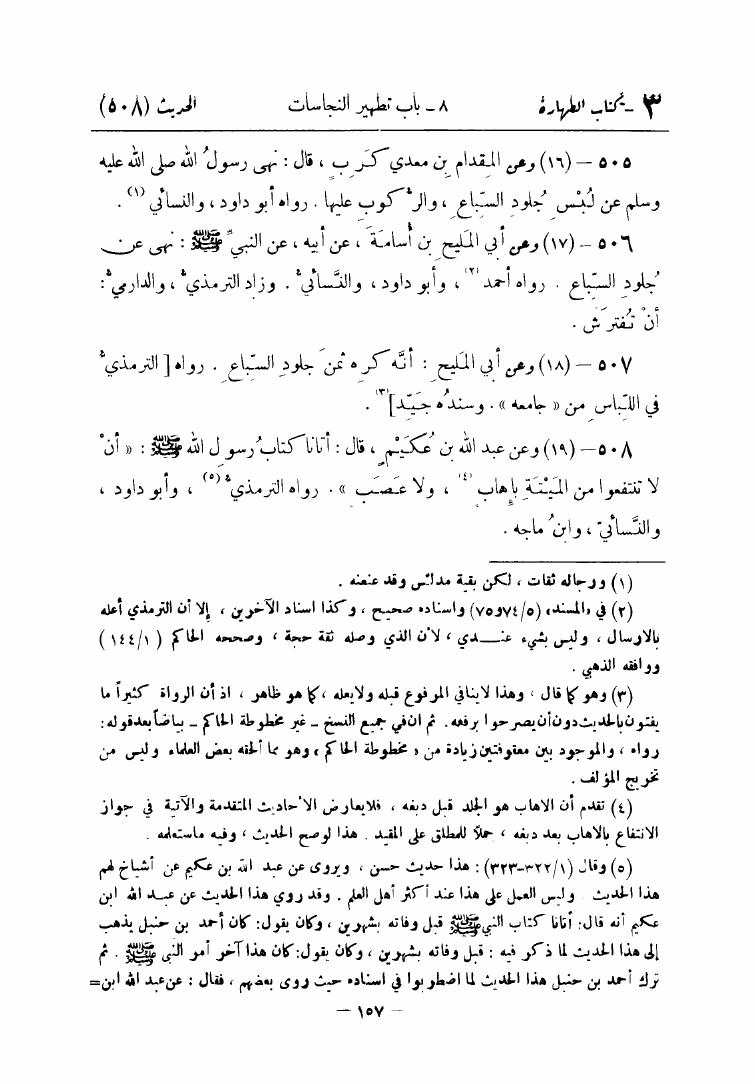 ٣ - كتاب الطهارة ٨ - باب تطهير النجاسات الحديث (٥٠٨)
٥٠٥ – (١٦) وعن المِقدام بن معدي كَرِبٍ ، قال : نهى رسولُ الله صلى الله عليه
وسلم عن لُبْسِ جُلودِ السِّباعِ ، والرُّكوبِ عليها . رواه أبو داود ، والنسائي (١) .
٥٠٦ – (١٧) وعن أبي المليحِ بنِ أُسامةَ ، عن أبيه ، عن النبيِّ ﷺ : نهى عن
جُلودِ السِّباعِ . رواه أحمد (٢) ، وأبو داود ، والنَّسائيُّ . وزاد الترمذيُّ ، والدارميُّ :
أنْ تُفترَشَ .
٥٠٧ – (١٨) وعن أبي المَليحِ : أنَّه كرِه ثمنَ جلودِ السِّباعِ . رواه [ الترمذيُّ
في اللِّباسِ من « جامعه » . وسندُه جَيِّد ] (٣) .
٥٠٨ – (١٩) وعن عبد الله بن عُكَيْمٍ ، قال : أتانا كتابُ رسولِ الله ﷺ : « أنْ
لا تنتفعوا من المَيْتَةِ بإِهابٍ (٤) ، ولا عَصَبٍ » . رواه الترمذيُّ (٥) ، وأبو داود ،
والنَّسائيّ ، وابنُ ماجه .
(١) ورجاله ثقات ، لكن بقية مدلس وقد عنعنه .
(٢) في «المسند» (٧٤/٥ و٧٥) واسناده صحيح ، وكذا اسناد الآخرين ، إلا أن الترمذي أعله
بالارسال ، وليس بشيء عنـدي ، لأن الذي وصله ثقة حجة ، وصححه الحاكم ( ١٤٤/١ )
ووافقه الذهبي .
(٣) وهو كما قال ، وهذا لاينافي المرفوع قبله ولايعله ، كما هو ظاهر ، اذ أن الرواة كثيراً ما
يفتون بالحديث دون أن يصرحوا برفعه . ثم ان في جميع النسخ – غير مخطوطة الحاكم – بياضاً بعد قوله :
رواه ، والموجود بين معقوفتين زيادة من « مخطوطة الحاكم » وهو مما ألحقه بعض العلماء وليس من
تخريج المؤلف .
(٤) تقدم أن الاهاب هو الجلد قبل دبغه ، فلايعارض الأحاديث المتقدمة والآتية في جواز
الانتفاع بالاهاب بعد دبغه ، حملاً للمطلق على المقيد . هذا لو صح الحديث ، وفيه ماستعلمه .
(٥) وقال (٣٢٢/١-٣٢٣) : هذا حديث حسن ، ويروى عن عبد الله بن عكيم عن أشياخ لهم
هذا الحديث . وليس العمل على هذا عند أكثر أهل العلم . وقد روي هذا الحديث عن عبـد الله ابن
عكيم أنه قال : أتانا كتاب النبي ﷺ قبل وفاته بشهرين ، وكان يقول : كان أحمد بن حنبل يذهب
إلى هذا الحديث لما ذكر فيه : قبل وفاته بشهرين ، وكان يقول : كان هذا آخر أمر النبي ﷺ . ثم
ترك أحمد بن حنبل هذا الحديث لما اضطربوا في اسناده حيث روى بعضهم ، فقال : عن عبد الله ابن=
– ١٥٧ –